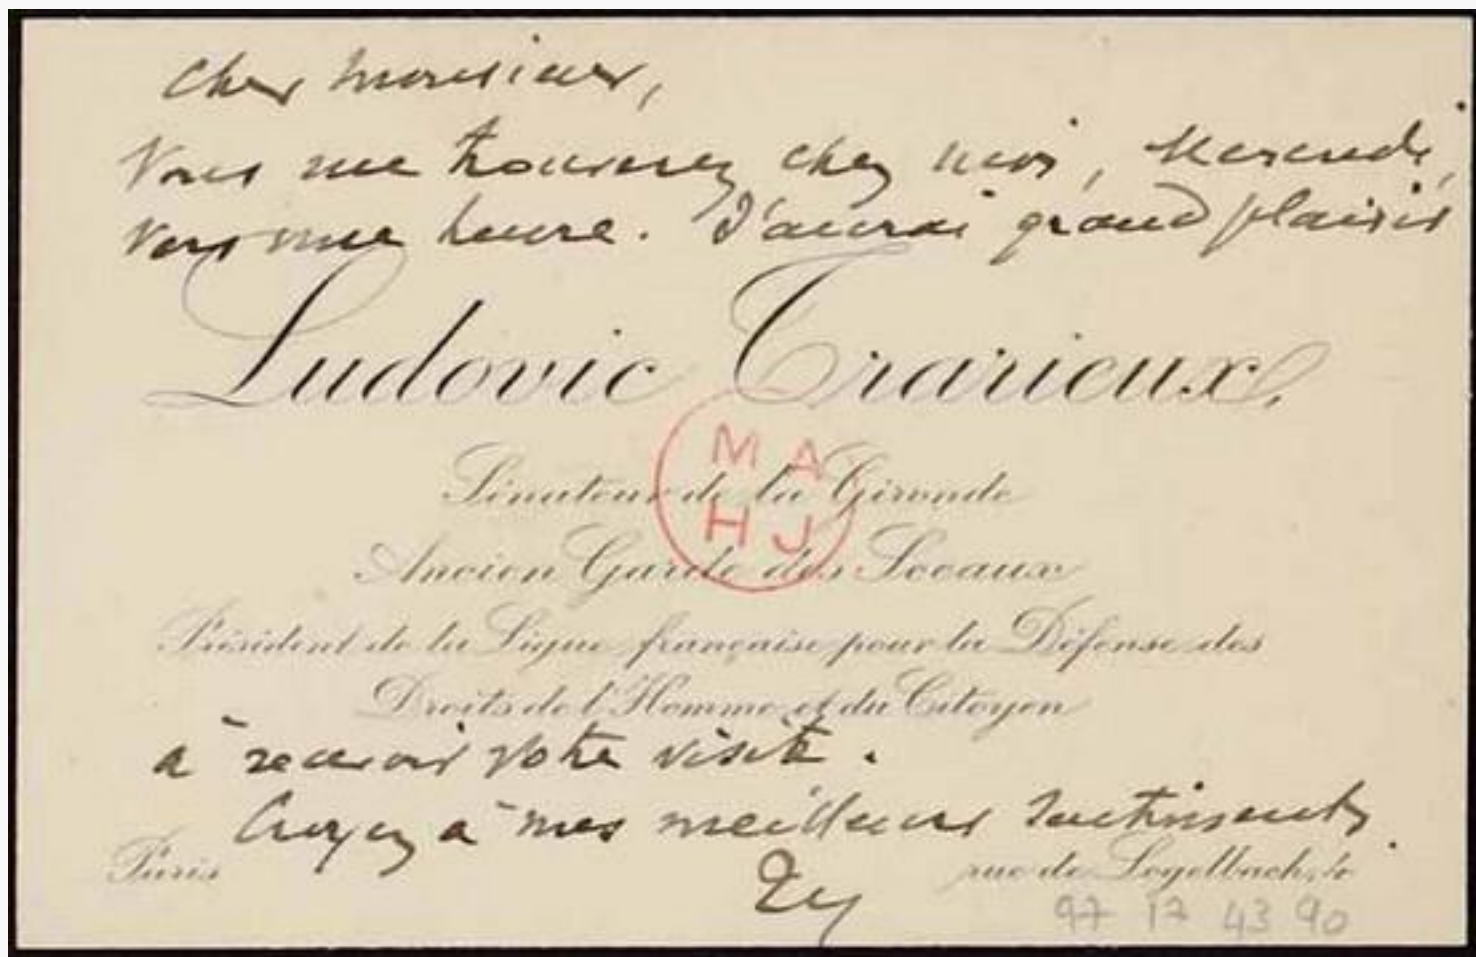 Cher Monsieur,
Vous me trouverez chez moi, Mercredi,
vers une heure. J'aurai grand plaisir
Ludovic Trarieux,
MA
HJ
Sénateur de la Gironde
Ancien Garde des Sceaux
Président de la Ligue française pour la Défense des
Droits de l'Homme et du Citoyen
à recevoir votre visite.
Croyez à mes meilleurs sentiments.
Paris
rue de Logelbach, 4
97 17 43 90